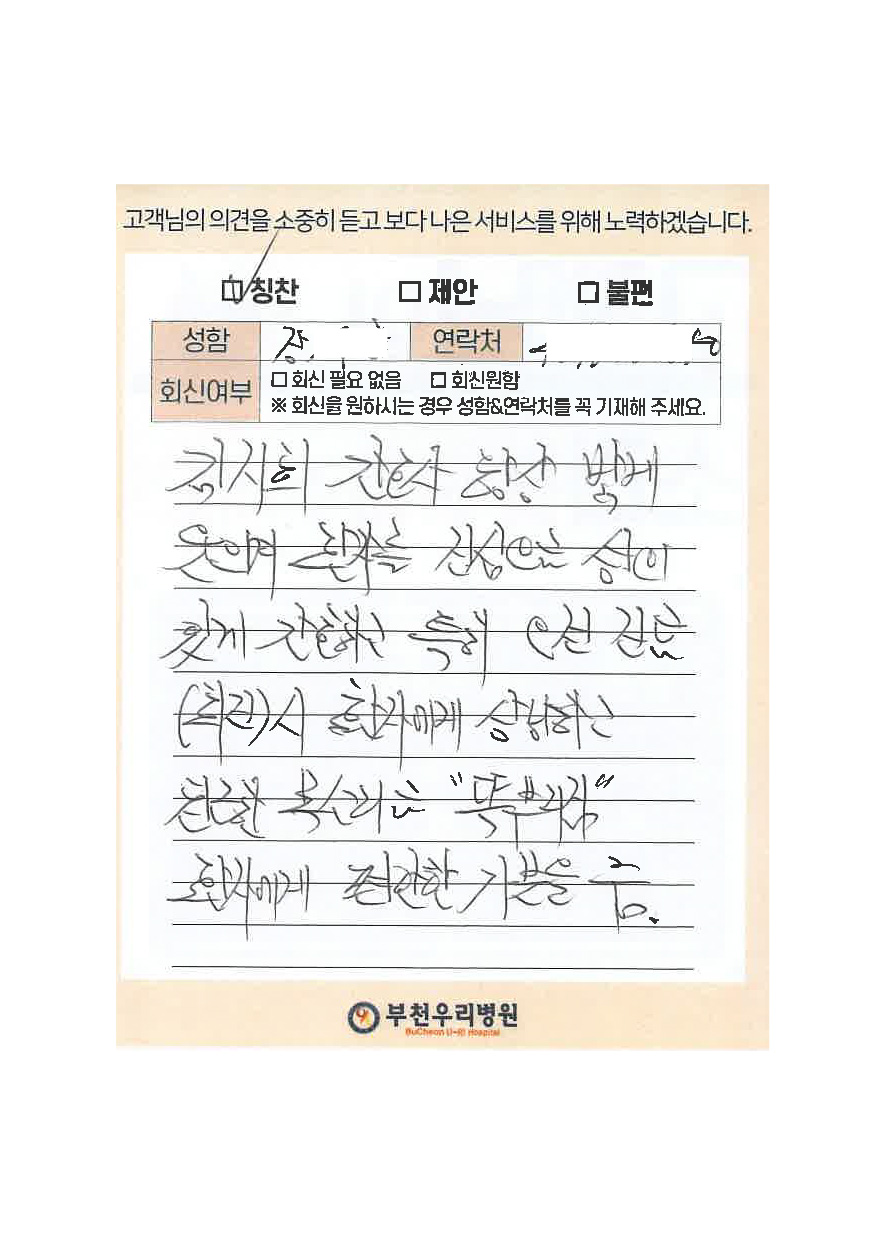 고객님의 의견을 소중히 듣고 보다 나은 서비스를 위해 노력하겠습니다.
☑ 칭찬 □ 제안 □ 불편
성함 장 연락처
회신여부 □ 회신 필요 없음 □ 회신원함
※ 회신을 원하시는 경우 성함&연락처를 꼭 기재해 주세요.
김지희 간호사 항상 밝게
웃으며 환자를 진심으로 성의
있게 간호하신 특히 오전
(회진)시 환자에게 상냥하신
친근한 목소리는 "똑부러짐"
환자에게 편안한 기분을 줌.
부천우리병원
BuCheon U-Ri Hospital